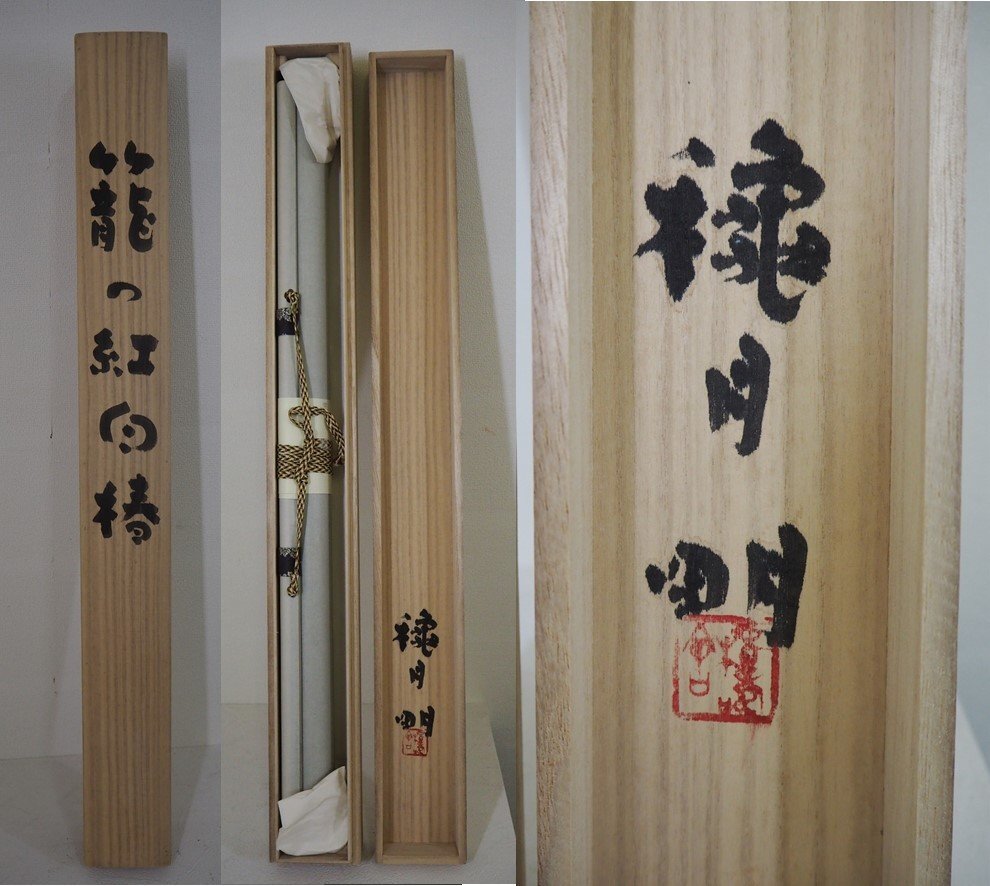 籠の紅白椿
穐月明
穐月明